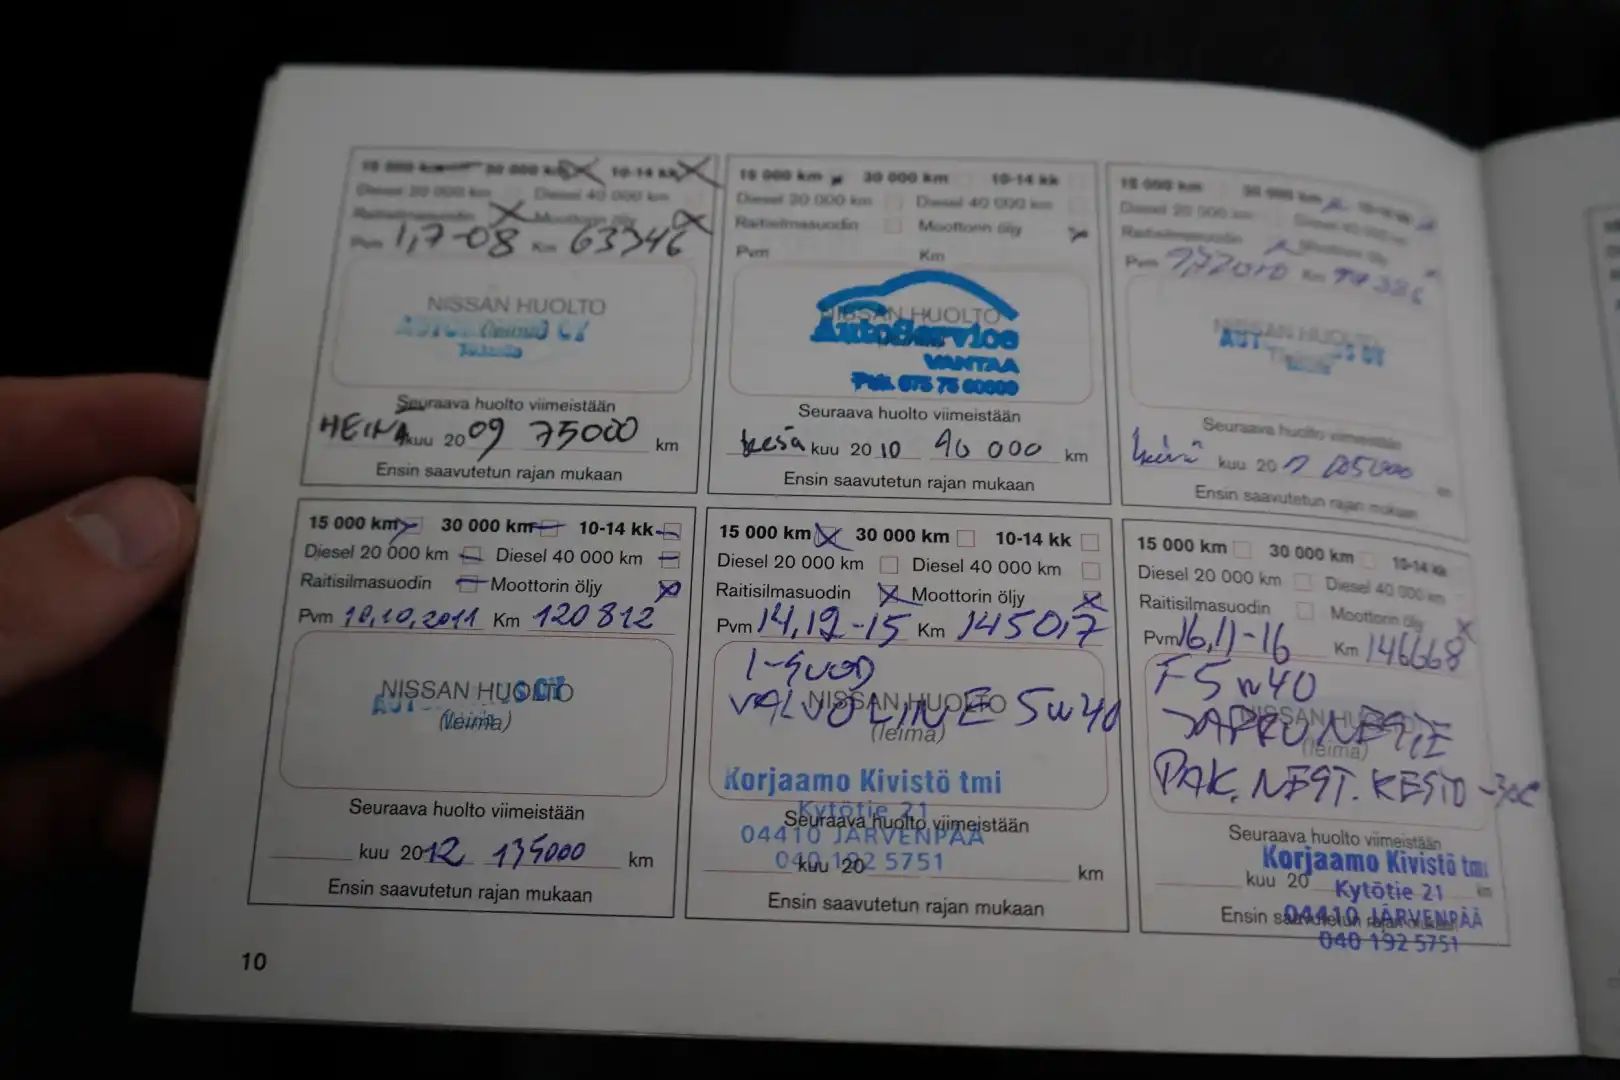 15 000 km 30 000 km 10-14 kk
Diesel 20 000 km Diesel 40 000 km
Raitisilmasuodin Moottorin öljy
Pvm 1,7-08 Km 63346
NISSAN HUOLTO
(leima) OY
Tuusula
Seuraava huolto viimeistään
HEINÄ kuu 2009 75000 km
Ensin saavutetun rajan mukaan
15 000 km 30 000 km 10-14 kk
Diesel 20 000 km Diesel 40 000 km
Raitisilmasuodin Moottorin öljy
Pvm Km
NISSAN HUOLTO
AutoService
VANTAA
Puh. 075 75 60000
Seuraava huolto viimeistään
kesä kuu 2010 90 000 km
Ensin saavutetun rajan mukaan
15 000 km 30 000 km 10-14 kk
Diesel 20 000 km Diesel 40 000 km
Raitisilmasuodin Moottorin öljy
Pvm Km
NISSAN HUOLTO
Seuraava huolto viimeistään
kuu 20 105000 km
Ensin saavutetun rajan mukaan
15 000 km 30 000 km 10-14 kk
Diesel 20 000 km Diesel 40 000 km
Raitisilmasuodin Moottorin öljy
Pvm 10,10,2011 Km 120812
NISSAN HUOLTO
(leima)
Seuraava huolto viimeistään
kuu 2012 135000 km
Ensin saavutetun rajan mukaan
15 000 km 30 000 km 10-14 kk
Diesel 20 000 km Diesel 40 000 km
Raitisilmasuodin Moottorin öljy
Pvm 14,12-15 Km 145017
NISSAN HUOLTO
VALVOLINE 5W40
(leima)
Korjaamo Kivistö tmi
Kytötie 21
Seuraava huolto viimeistään
04410 JÄRVENPÄÄ
040 192 5751
kuu 20 km
Ensin saavutetun rajan mukaan
15 000 km 30 000 km 10-14 kk
Diesel 20 000 km Diesel 40 000 km
Raitisilmasuodin Moottorin öljy
Pvm 16,11-16 Km 146668
5W40
NISSAN HUOLTO
(leima)
PAK. NEST. KESTO -30C
Seuraava huolto viimeistään
Korjaamo Kivistö tmi
kuu 20 km
Kytötie 21
Ensin saavutetun rajan mukaan
04410 JÄRVENPÄÄ
040 192 5751
10